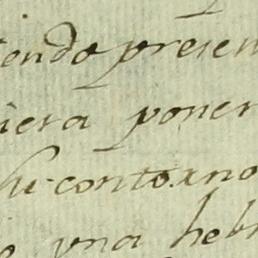 iendo presen
iera poner
su contorno
una hebr